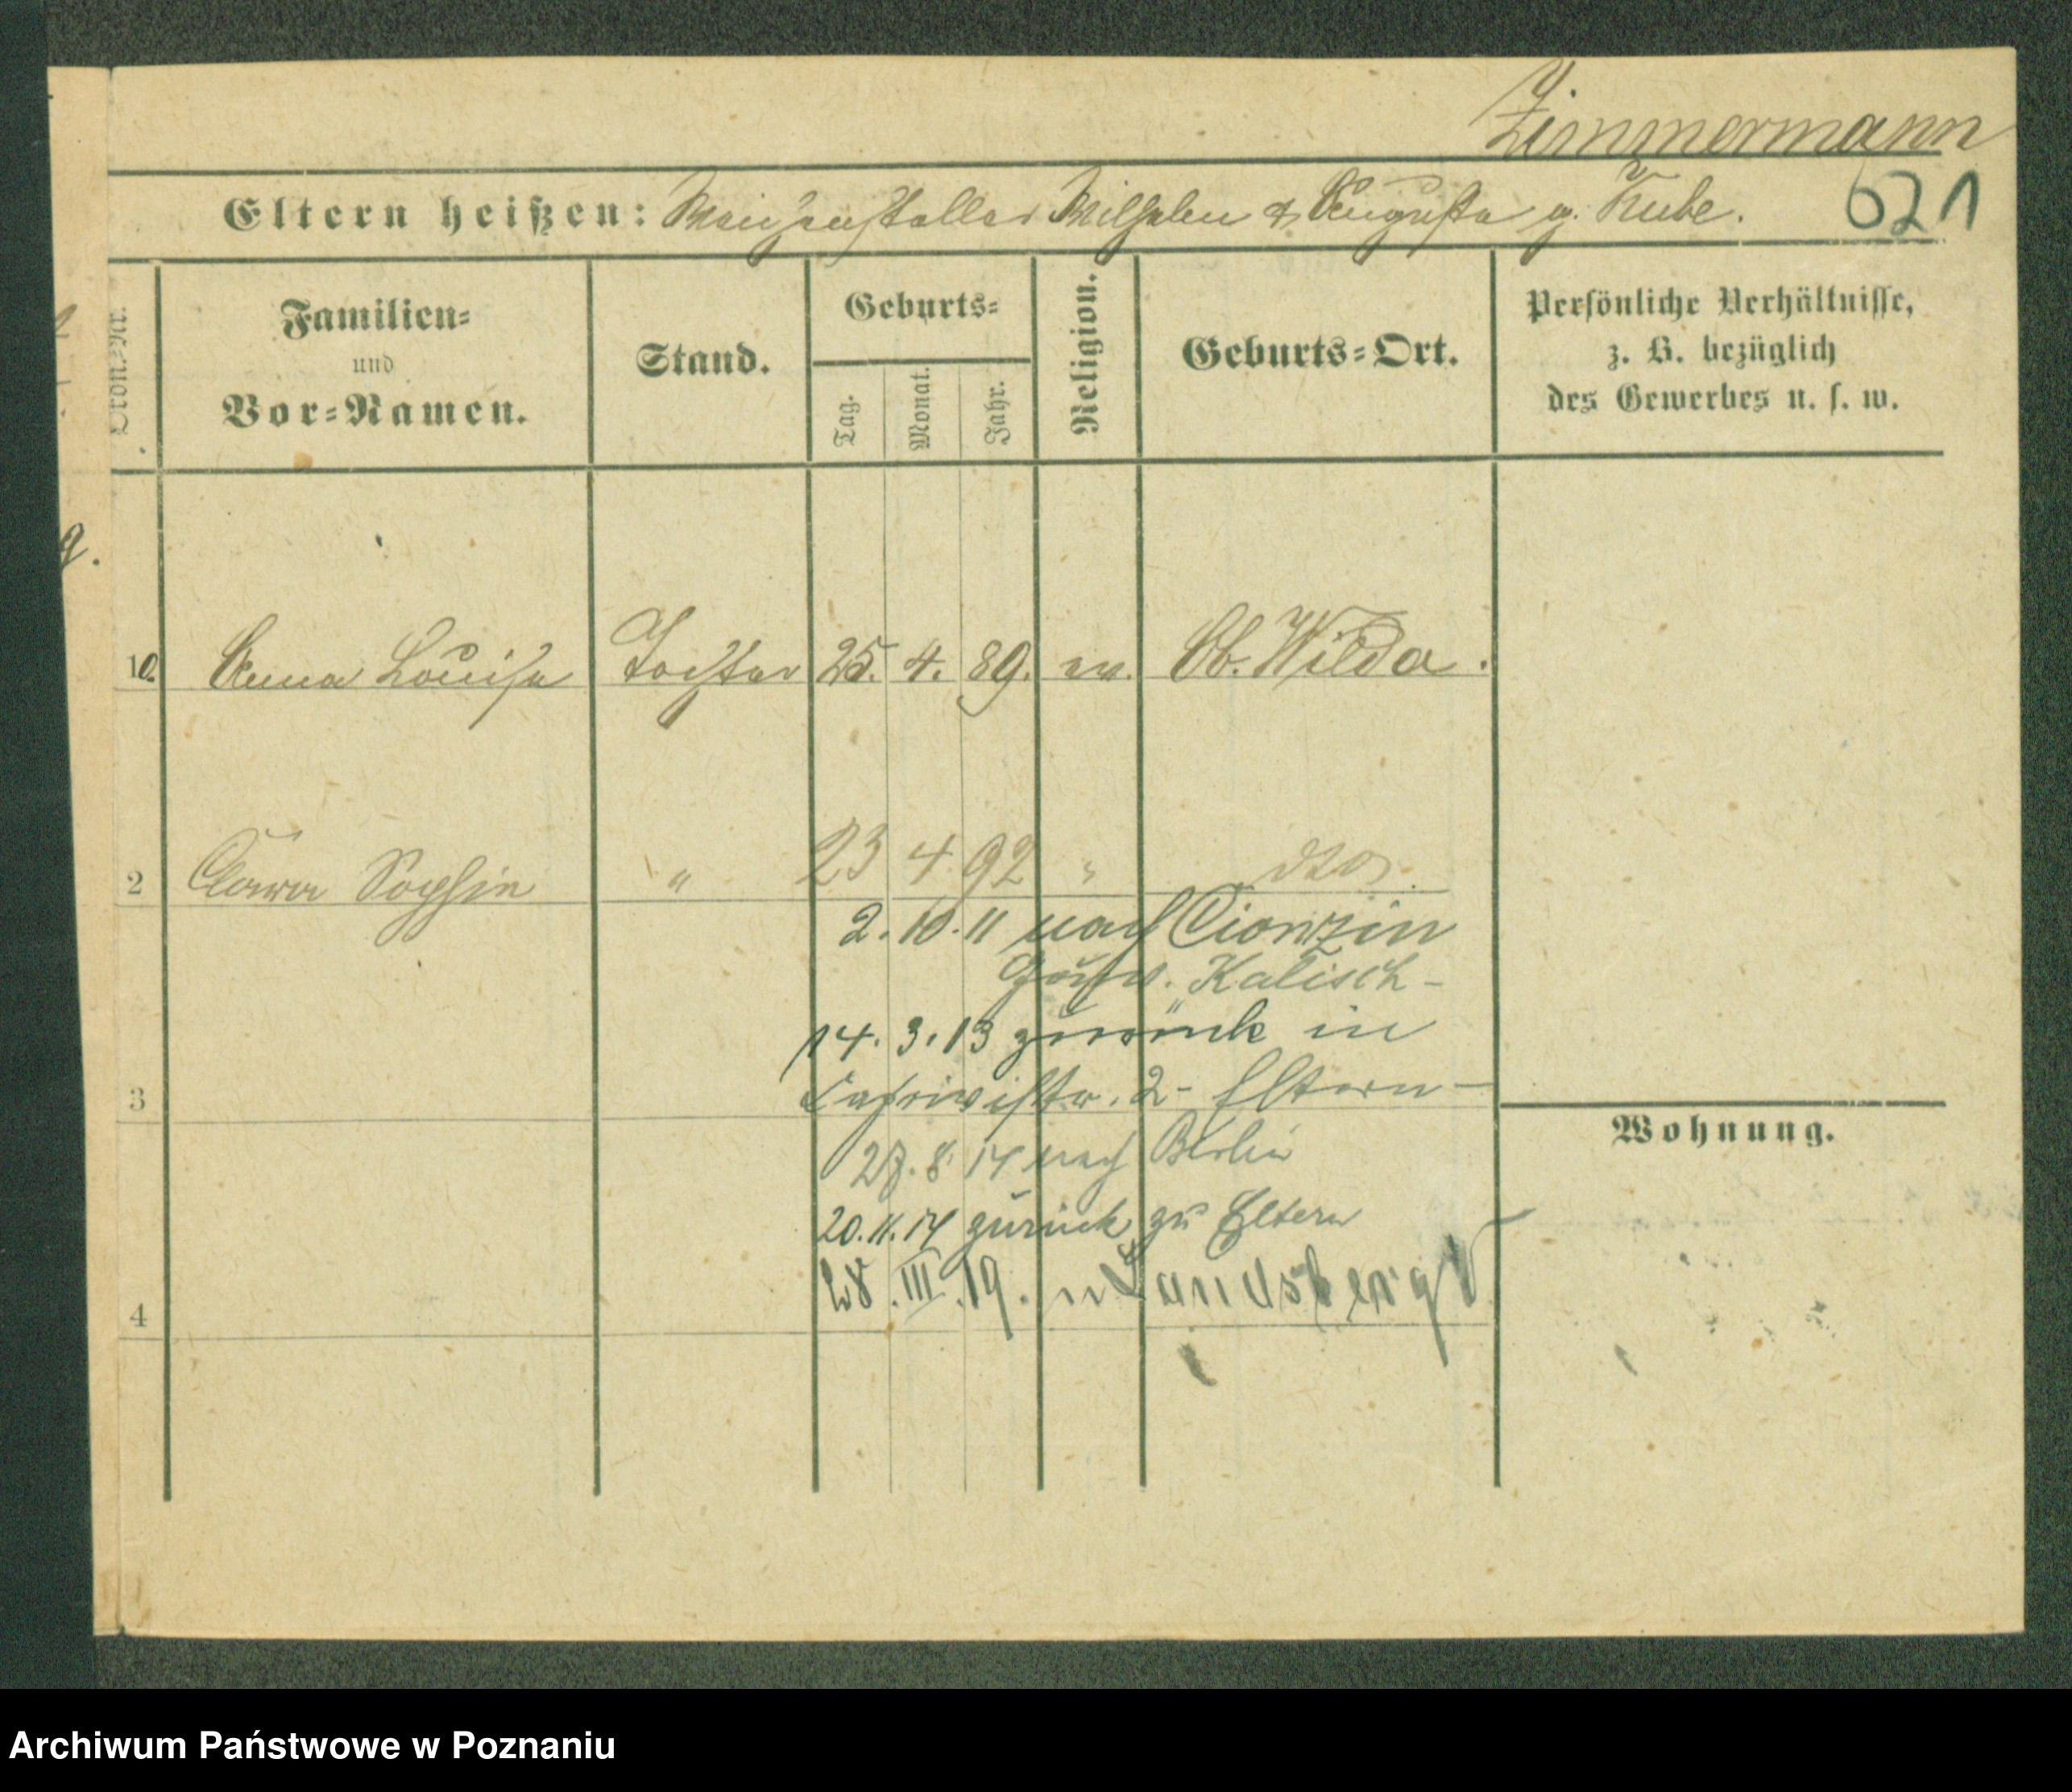 Zimmermann
Eltern heißen: Weichensteller Wilhelm & Auguste g. Kube. 621
Ordn.-Nr.
Familien- und Vor-Namen.
Stand.
Geburts-
Tag. Monat. Jahr.
Religion.
Geburts-Ort.
Persönliche Verhältnisse,
z. B. bezüglich
des Gewerbes u. s. w.
g.
10. Anna Louise Tochter 25. 4. 89. ev. Ob. Wilda.
2 Clara Sophie " 23 4 92 " dto.
2. 10. 11 nach
Kalisch-
14. 3. 13 zurück in
3 Caprivistr. 2- Eltern-
Wohnung.
8. 14 nach Berlin
20.11.14 zurück zu Eltern
4 28.III.19. n Landsberg
Archiwum Państwowe w Poznaniu